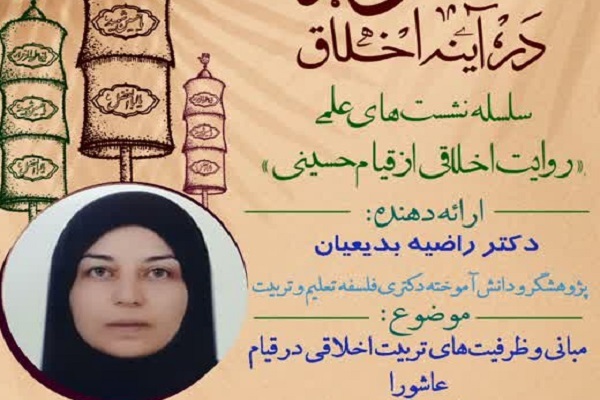 در آینه اخلاق
سلسله نشست‌های علمی
«روایت اخلاقی از قیام حسینی»
ارائه دهنده:
دکتر راضیه بدیعیان
پژوهشگر و دانش آموخته دکتری فلسفه تعلیم و تربیت
موضوع:
مبانی و ظرفیت‌های تربیت اخلاقی در قیام
عاشورا